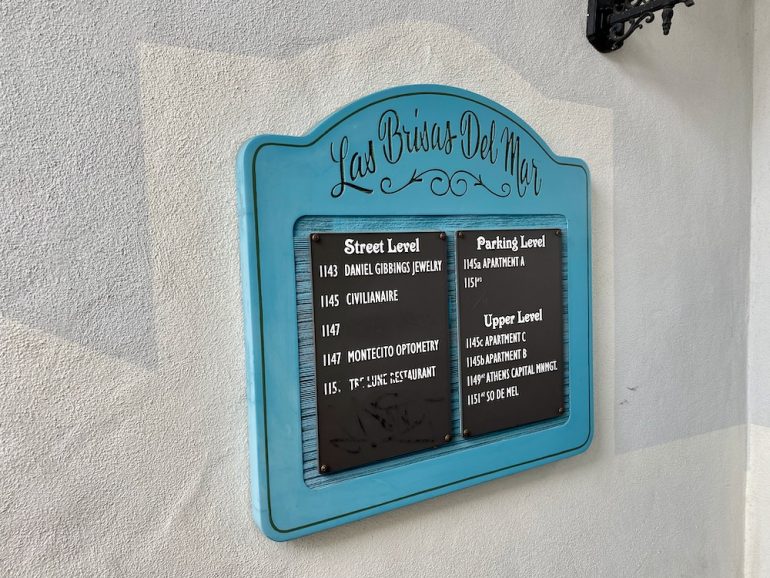 Las Brisas Del Mar
Street Level
1143 DANIEL GIBBINGS JEWELRY
1145 CIVILIANAIRE
1147
1147 MONTECITO OPTOMETRY
TRE LUNE RESTAURANT
Parking Level
1145a APARTMENT A
Upper Level
1145c APARTMENT C
1145b APARTMENT B
1149st ATHENS CAPITAL MNMGT.
1151st SO DE MEL